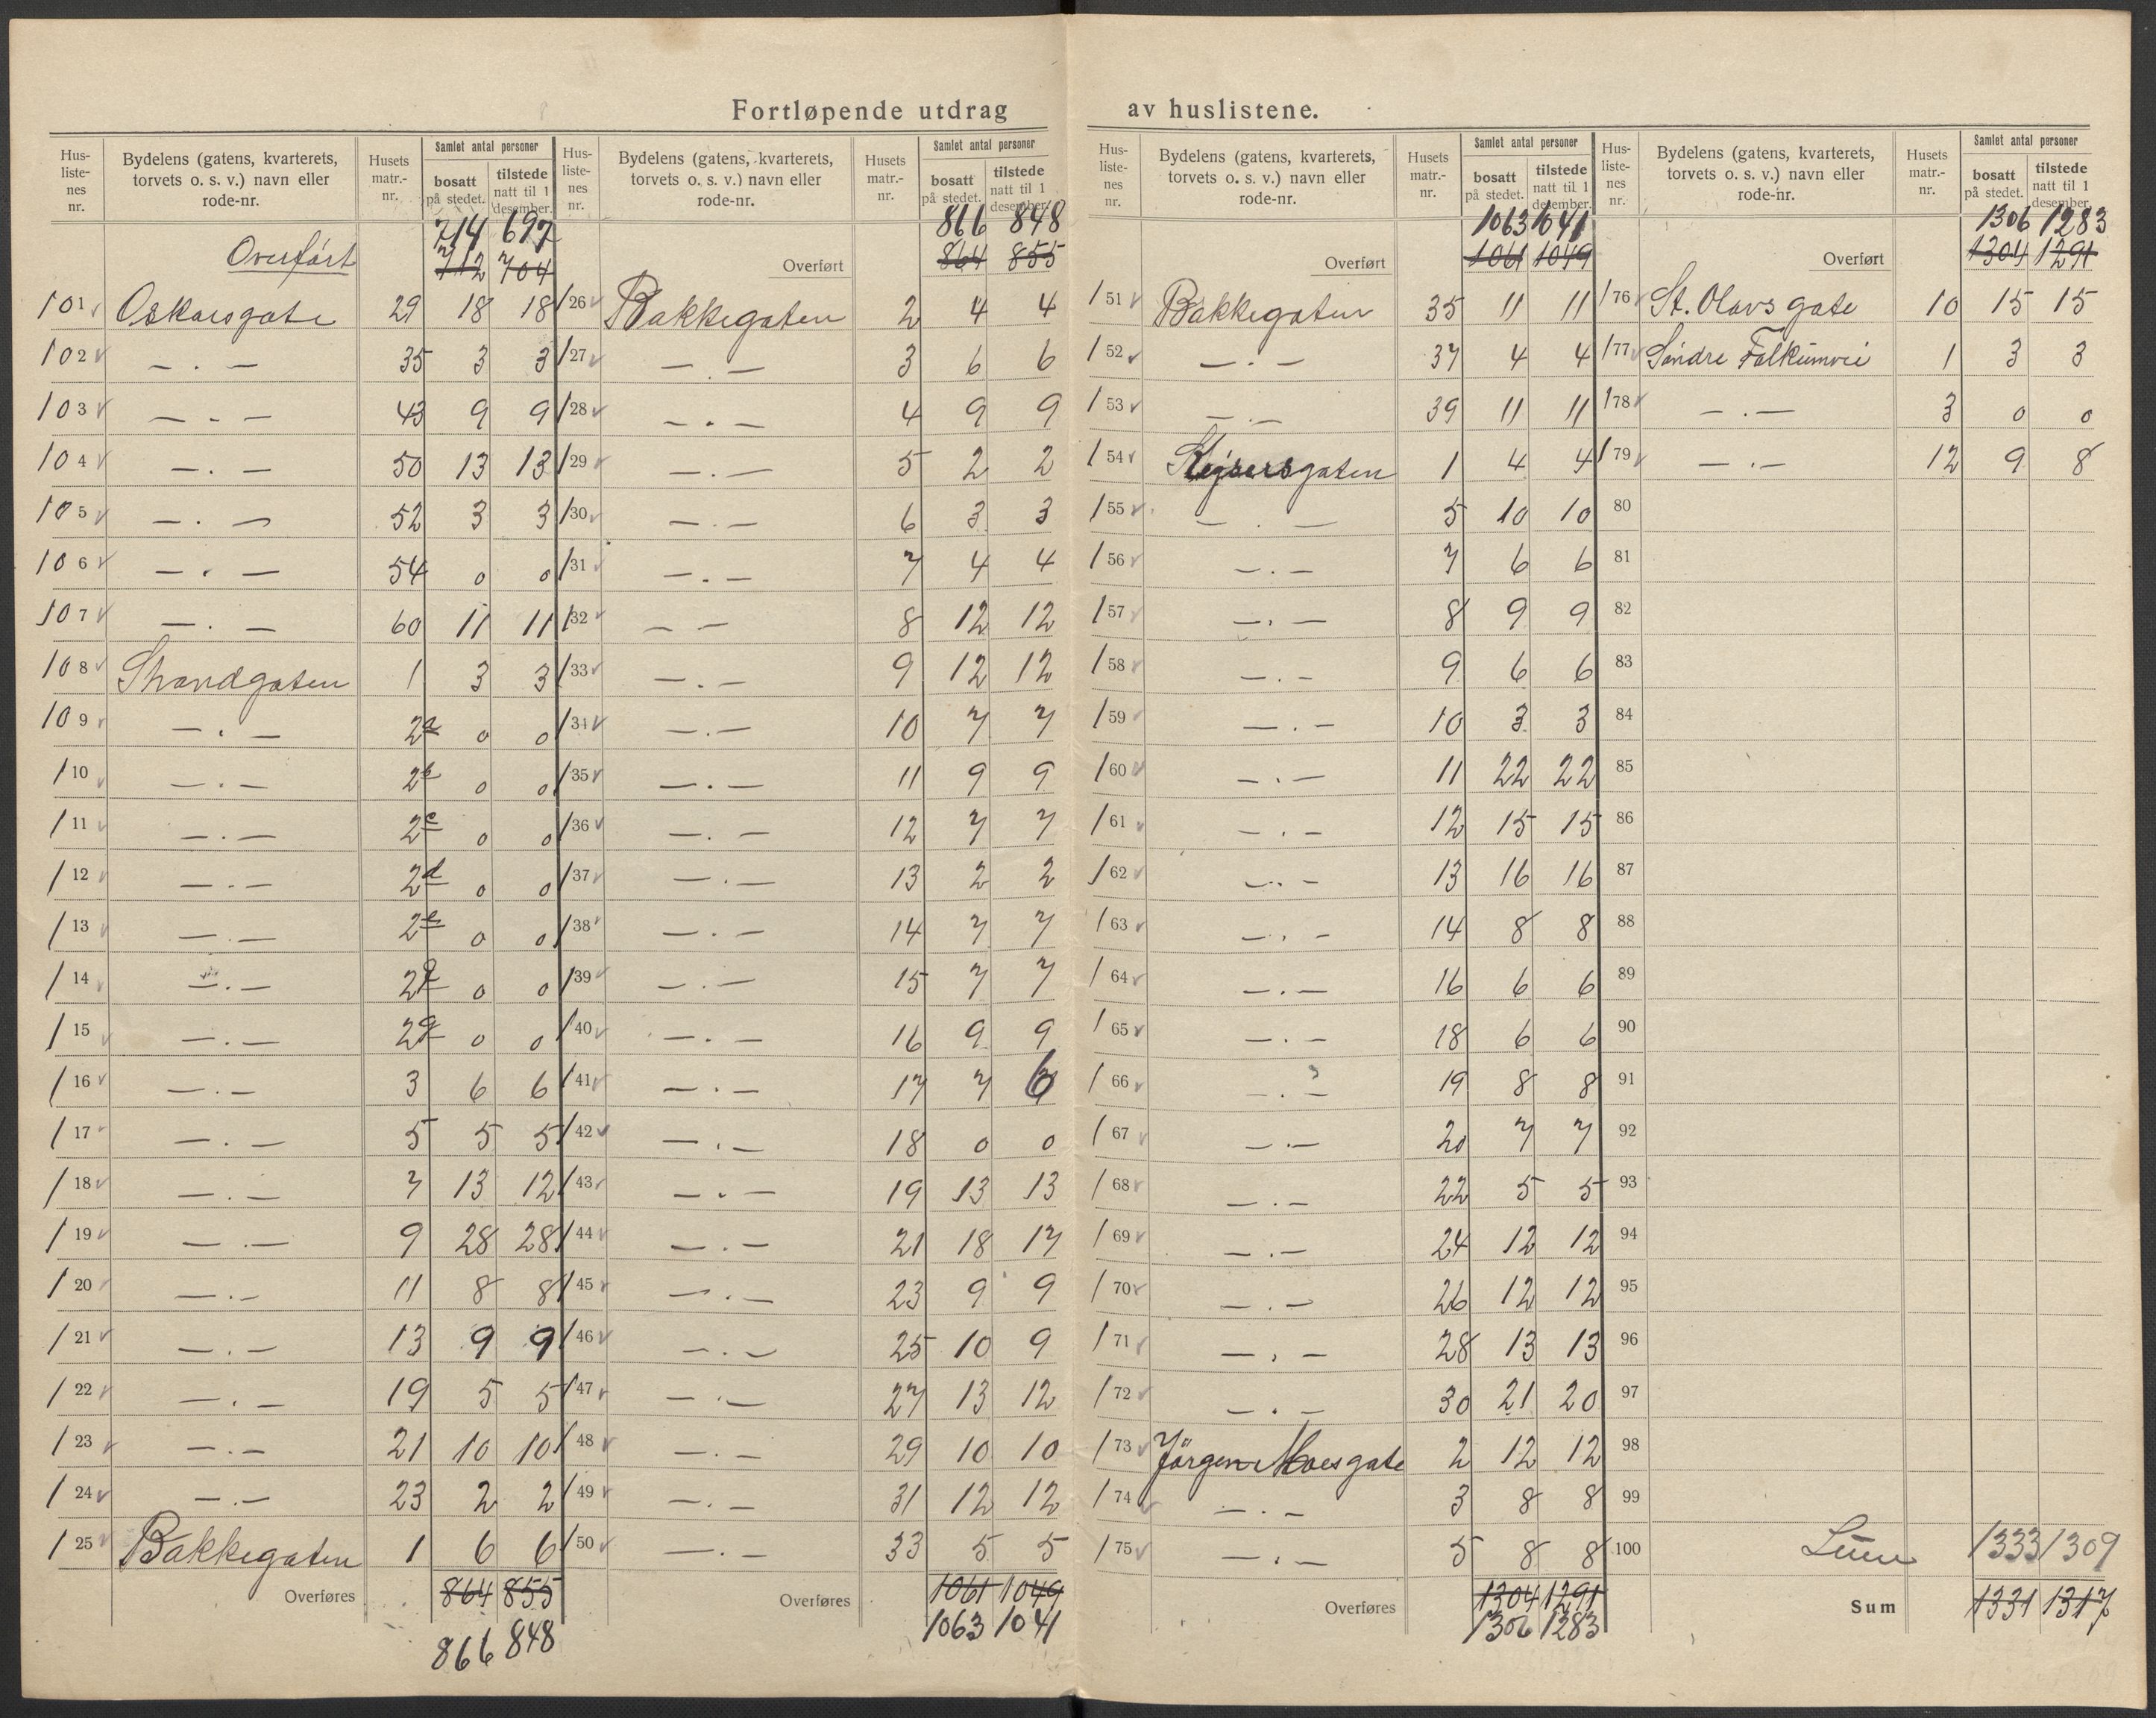 Fortløpende utdrag av huslistene.
Hus-listenes nr. Bydelens (gatens, kvarterets, torvets o. s. v.) navn eller rode-nr. Husets matr.-nr. Samlet antal personer bosatt på stedet. tilstede natt til 1 desember.
714 697
Overført 712 704
101 Oskarsgate 29 18 18
102 — . — 35 3 3
103 — . — 43 9 9
104 — . — 50 13 13
105 — . — 52 3 3
106 — . — 54 0 0
107 — . — 60 11 11
108 Strandgaten 1 3 3
109 — . — 2a 0 0
110 — . — 2b 0 0
111 — . — 2c 0 0
112 — . — 2d 0 0
113 — . — 2e 0 0
114 — . — 2f 0 0
115 — . — 2g 0 0
116 — . — 3 6 6
117 — . — 5 5 5
118 — . — 7 13 12
119 — . — 9 28 28
120 — . — 11 8 8
121 — . — 13 9 9
122 — . — 19 5 5
123 — . — 21 10 10
124 — . — 23 2 2
125 Bakkegaten 1 6 6
Overføres 864 855
866 848
Hus-listenes nr. Bydelens (gatens, kvarterets, torvets o. s. v.) navn eller rode-nr. Husets matr.-nr. Samlet antal personer bosatt på stedet. tilstede natt til 1 desember.
866 848
Overført 864 855
126 Bakkegaten 2 4 4
127 — . — 3 6 6
128 — . — 4 9 9
129 — . — 5 2 2
130 — . — 6 3 3
131 — . — 7 4 4
132 — — 8 12 12
133 — . — 9 12 12
134 — . — 10 7 7
135 — . — 11 9 9
136 — . — 12 7 7
137 — . — 13 2 2
138 — . — 14 7 7
139 — . — 15 7 7
140 — . — 16 9 9
141 — . — 17 7 6
142 — . — 18 0 0
143 — . — 19 13 13
144 — . — 21 18 17
145 — . — 23 9 9
146 — . — 25 10 9
147 — . — 27 13 12
148 — . — 29 10 10
149 — . — 31 12 12
150 — . — 33 5 5
Overføres 1061 1049
1063 1041
Hus-listenes nr. Bydelens (gatens, kvarterets, torvets o. s. v.) navn eller rode-nr. Husets matr.-nr. Samlet antal personer bosatt på stedet. tilstede natt til 1 desember.
1063 1041
Overført 1061 1049
151 Bakkegaten 35 11 11
152 — . — 37 4 4
153 — . — 39 11 11
154 Keysersgaten 1 4 4
155 — . — 5 10 10
156 — . — 7 6 6
157 — . — 8 9 9
158 — . — 9 6 6
159 — . — 10 3 3
160 — . — 11 22 22
161 — . — 12 15 15
162 — . — 13 16 16
163 — . — 14 8 8
164 — . — 16 6 6
165 — . — 18 6 6
166 — . — 19 8 8
167 — . — 20 7 7
168 — . — 22 5 5
169 — . — 24 12 12
170 — . — 26 12 12
171 — . — 28 13 13
172 — . — 30 21 20
173 Jörgen Moesgate 2 12 12
174 — . — 3 8 8
175 — . — 5 8 8
Overføres 1304 1291
1306 1283
Hus-listenes nr. Bydelens (gatens, kvarterets, torvets o. s. v.) navn eller rode-nr. Husets matr.-nr. Samlet antal personer bosatt på stedet. tilstede natt til 1 desember.
1306 1283
Overført 1304 1291
176 St. Olavs gate 10 15 15
177 Söndre Falkumvei 1 3 3
178 — . — 3 0 0
179 — . — 12 9 8
80
81
82
83
84
85
86
87
88
89
90
91
92
93
94
95
96
97
98
99
100 Sum 1333 1309
Sum 1331 1317